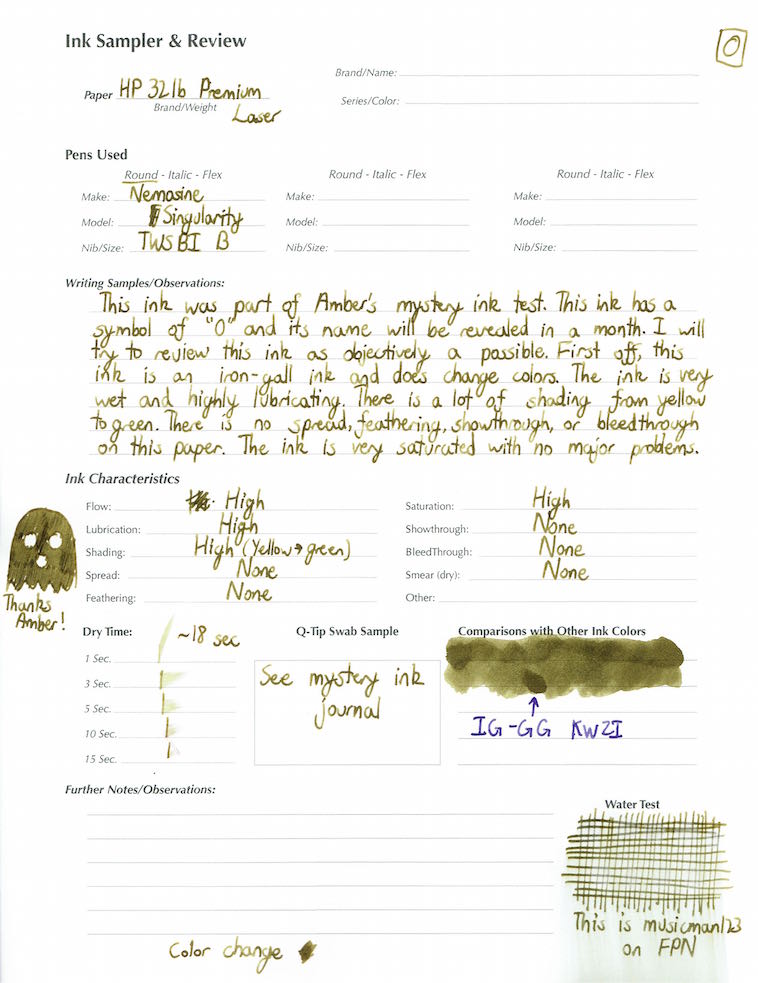 Ink Sampler & Review
O
Brand/Name:
Paper HP 32lb Premium
Brand/Weight
Laser
Series/Color:
Pens Used
Round - Italic - Flex
Round - Italic - Flex
Round - Italic - Flex
Make: Nemosine
Make:
Make:
Model: Singularity
Model:
Model:
Nib/Size: TWSBI B
Nib/Size:
Nib/Size:
Writing Samples/Observations:
This ink was part of Amber's mystery ink test. This ink has a
symbol of "O" and its name will be revealed in a month. I will
try to review this ink as objectively a possible. First off, this
ink is an iron-gall ink and does change colors. The ink is very
wet and highly lubricating. There is a lot of shading from yellow
to green. There is no spread, feathering, showthrough, or bleedthrough
on this paper. The ink is very saturated with no major problems.
Ink Characteristics
Flow: High
Lubrication: High
Shading: High (Yellow → green)
Spread: None
Feathering: None
Saturation: High
Showthrough: None
BleedThrough: None
Smear (dry): None
Other:
Thanks
Amber!
Dry Time: ~18 sec
1 Sec.
3 Sec.
5 Sec.
10 Sec.
15 Sec.
Q-Tip Swab Sample
See mystery ink
journal
Comparisons with Other Ink Colors
IG-GG KWZI
Further Notes/Observations:
Water Test
This is musicman123
on FPN
Color change